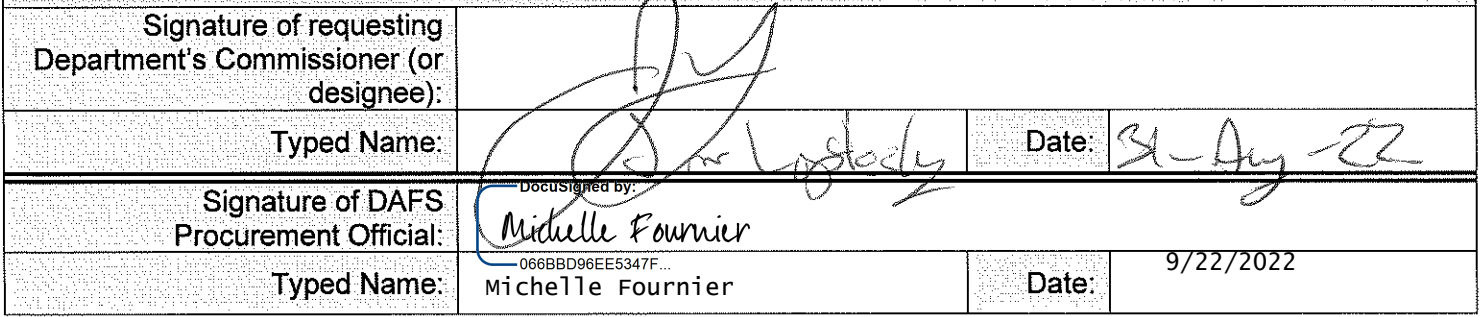 Signature of requesting
Department's Commissioner (or
designee):
Typed Name:
Date: 31-Aug-22
Signature of DAFS
Procurement Official:
DocuSigned by:
Michelle Fournier
066BBD96EE5347F...
Typed Name: Michelle Fournier
Date: 9/22/2022